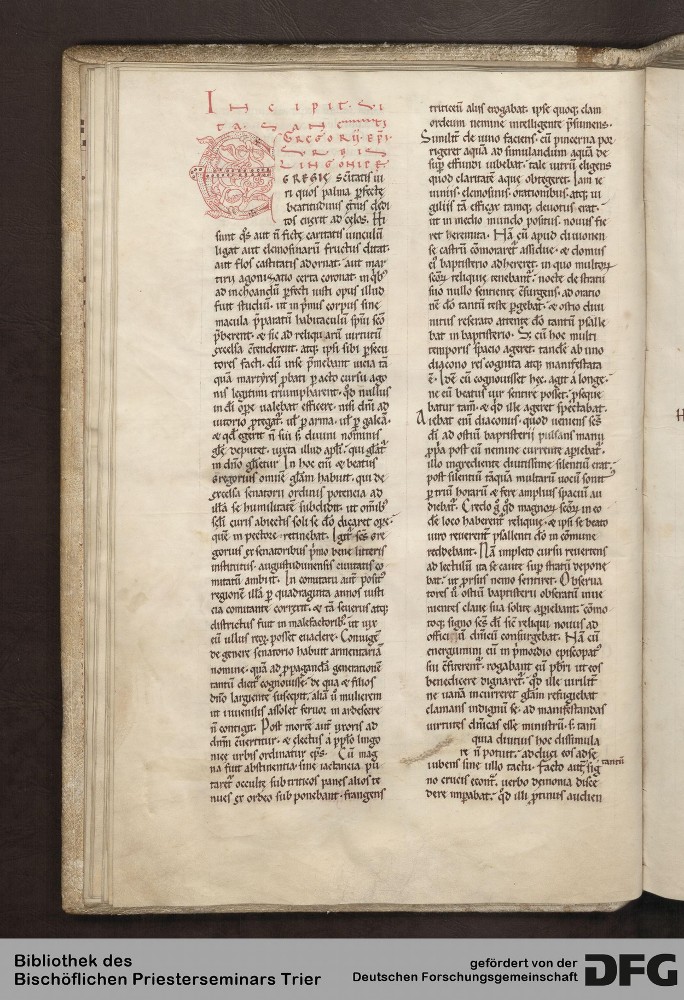 INCIPIT VI
TA SANCTI
GREGORII EPI
LINGONICE
EGREGIE sc̄itatis ui
ri quos palma p̄fecte
beatitudinis
tos euexit ad cęlos. Hi
sunt q̄s aut n̄ fictę caritatis uinculū
ligat aut elemosinarū fructus ditat.
aut flos castitatis adornat. aut mar
tirii agonizatio certa coronat. in q̄b;
ad inchoandū p̄fecti iusti opus illud
fuit studiū. ut in p̄mis corpus sine
macula p̄paratū habitaculū sp̄ui sc̄o
p̄berent. & sic ad reliquarū uirtutū
excelsa c̄tenderent. atq; ipsi sibi p̄secu
tores facti. dū in se p̄mebant uicia tā
quā martyres p̄bati pacto cursu ago
nis legitimi triumpharent. qd̄ nullus
in d̄i ope ualebat efficere. nisi dn̄i ad
iutorio p̄tegat̄. ul̄ parma. ul̄ galeā.
& qd̄ egerit n̄ sui s; diuini nominis
glē deputet. iuxta illud apl̄i. qui gl̄at̄
in dn̄o gl̄ietur. In hoc eni & beatus
Gregorius omnē gl̄am habuit. qui de
excelsa senatorii ordinis potencia ad
illā se humilitatē subdidit. ut omib;
sc̄li curis abiectis soli se d̄o dicaret
quē in pectore retinebat. Igit̄ sc̄s Gre
gorius ex senatoribus p̄mo bene litteris
institutus. augustudunensis ciuitatis co
mitatū ambiit. In comitatu aut̄ posit;
regionē illā p quadraginta annos iusti
cia comitante correxit. & tā seuerus atq;
districtus fuit in malefactorib; ut uix
eū ullus reoꝝ posset euadere. Coniugē
de genere senatorio habuit armentariā
nomine. quā ad p̄paganda generationē
tantū dicit̄ cognouisse. de qua & filios
dn̄o largiente suscepit. aliā ū mulierem
ut iuuenilis assolet feruor in ardescere
n̄ contigit. Post mortē aut̄ uxoris ad
dn̄m c̄uertitur. & electus a pp̄lo lingo
nice urbis ordinatur ep̄s. Cū mag
na fuit abstinentia. sine iactancia pu
taret̄ occulte sub triticos panes alios te
nues ex ordeo sub ponebant. frangens
triticeū aliis erogabat. ipse quoq; clam
ordeum nemine intelligente p̄sumens.
Similit̄ de uino faciens. cū pincerna por
rigeret aquā ad simulandum aquā de
sup effundi iubebat. tale uitrū eligens
quod claritatē aque obtegeret. Iam ie
iuniis. elemosinis. orationibus. atq; ui
giliis tā efficax tamq; deuotus erat.
ut in medio mundo positus. nouus fie
ret heremita. Hā cū apud diuionen
se castrū cōmoraret̄ assidue. & domus
ei; baptisterio adhereret. in quo multoꝝ
sc̄oꝝ reliquie tenebant̄. nocte de stratu
suo nullo sentiente c̄surgens. ad oratio
nē d̄o tantū teste pgebat. & ostio diui
nitus reserato attente d̄o tantū psalle
bat in baptisterio. S; cū hoc multi
temporis spacio ageret. tandē ab uno
diacono res cognita atq; manifestata
ē. Idē cū cognouisset hęc. agit a longe.
ne eū beatus uir sentire posset. p̄seque
batur tam̄. & qd̄ ille ageret spectabat.
Aiebat eni diaconus. quod ueniens sc̄s
d̄i ad ostiū baptisterii pulsans manu
p̄pria post eū nemine currente aperiebat̄.
illo ingrediente diutissime silentiū erat.
post silentiū tāquā multarū uocū sonit̄
p triū horarū & fere amplius spaciū au
diebat̄. Credo g̊ qd̄ magnoꝝ sc̄oꝝ in eo
dē loco haberent̄ reliquie. & ipsi se beato
uiro reuerent̄ psallenti d̄o in cōmune
reddebant. Nā impleto cursu reuertens
ad lectulū ita se caute sup stratū depone
bat. ut p̄rsus nemo sentiret. Obserua
tores ū ostiū baptisterii obseratū inue
nientes claue sua solite apiebant. cōmo
toq; signo sc̄s d̄i sic̄ reliqui nouus ad
officiū dn̄icū consurgebat. Hā cū
energumini eū in p̄mordio episcopat;
sui c̄fiterent̄. rogabant eū pb̄ri ut eos
benedicere dignaret̄. qd̄ ille uirilit̄
ne uanā incurreret gl̄am refugiebat
clamans indignū se. ad manifestandas
uirtutes dn̄icas esse ministrū. s; tam̄
quia diutius hoc dissimula
re n̄ potuit. adduci eos ad se
iubens sine ullo tactu. facto aut̄ sig
tantū
no crucis econt̄. uerbo demonia disce
dere impabat. qd̄ illi p̄tinus audien
H
Bibliothek des
Bischöflichen Priesterseminars Trier
gefördert von der
Deutschen Forschungsgemeinschaft
DFG